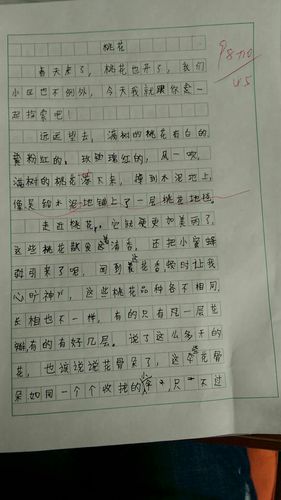 桃花
春天来了，桃花也开了，我们
小区也不例外，今天我就跟你走一
起探索吧！
远远望去，满树的桃花有白的
粉红的，玫瑰红的，风一吹，
满树的桃花落下来，掉到水泥地上，
像是给水泥地铺上了一层桃花地毯。
走近桃花，它就更更加美丽了，
这些桃花散发着清香，还把小蜜蜂
吸引来了呢，闻到这花香，顿时让我
心旷神，这些桃花品种各不相同，
长相也不一样，有的只有几一层花
瓣有的有好几层。说了这么多开的
花，也该说说花骨朵了，这些花骨
朵如同一个个收拢的伞，只不过
98+10